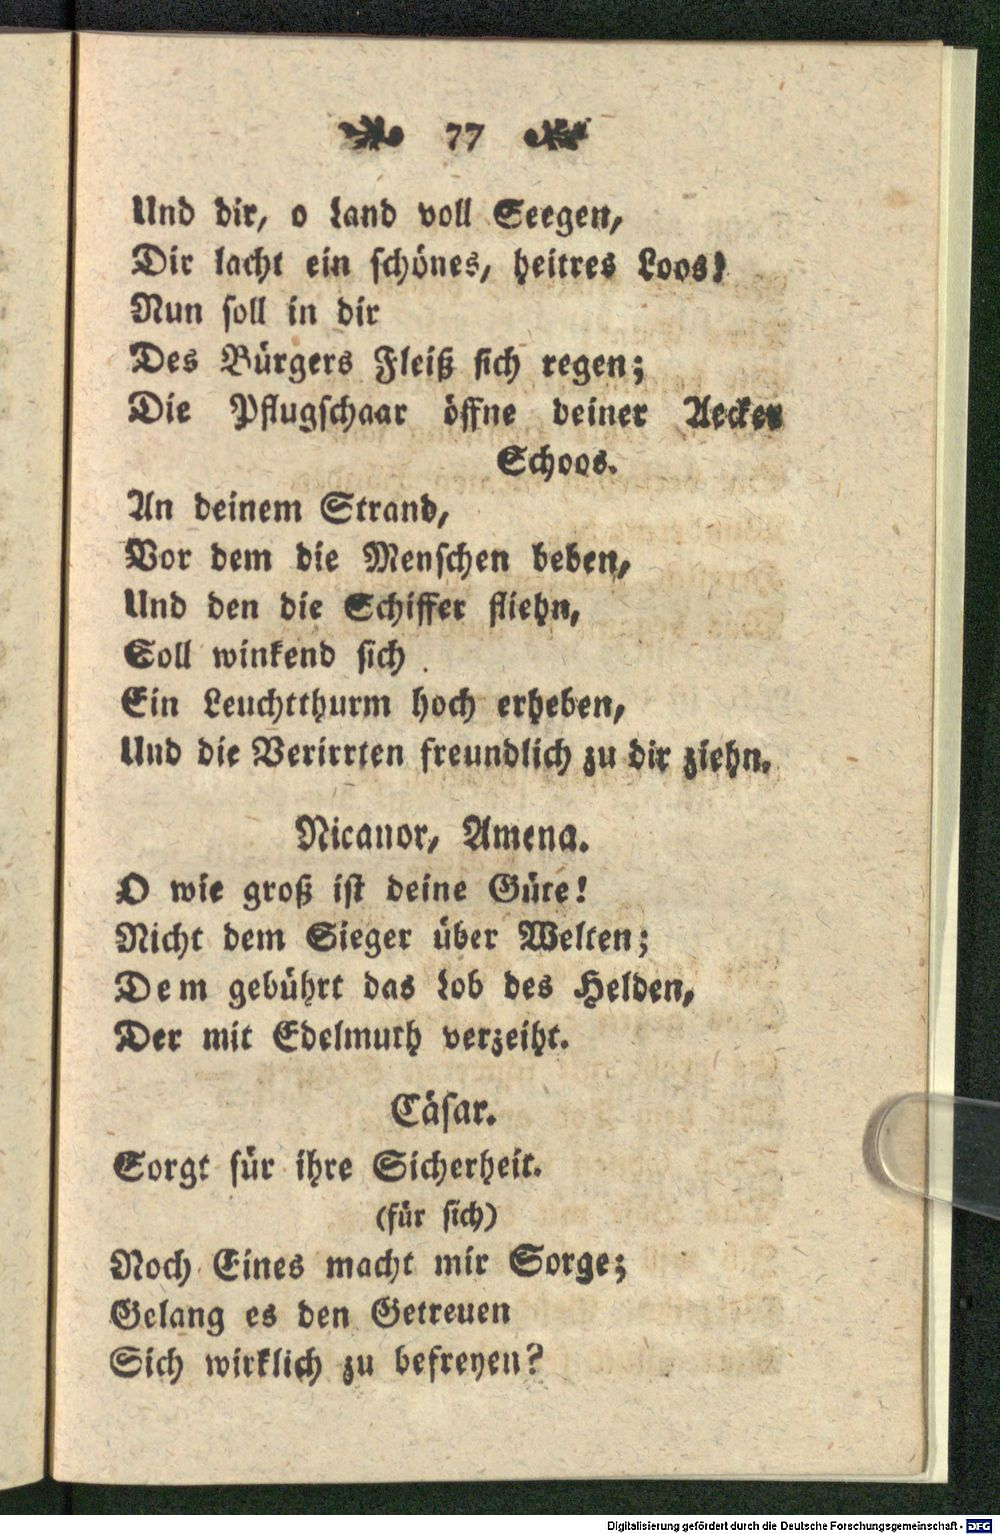 77
Und dir, o Land voll Seegen,
Dir lacht ein schönes, heitres Loos!
Nun soll in dir
Des Bürgers Fleiß sich regen;
Die Pflugschaar öffne deiner Aecker
Schoos.
An deinem Strand,
Vor dem die Menschen beben,
Und den die Schiffer fliehn,
Soll winkend sich
Ein Leuchtthurm hoch erheben,
Und die Verirrten freundlich zu dir ziehn.
Nicanor, Amena.
O wie groß ist deine Güte!
Nicht dem Sieger über Welten;
Dem gebührt das Lob des Helden,
Der mit Edelmuth verzeiht.
Cäsar.
Sorgt für ihre Sicherheit.
(für sich)
Noch Eines macht mir Sorge;
Gelang es den Getreuen
Sich wirklich zu befreyen?
Digitalisierung gefördert durch die Deutsche Forschungsgemeinschaft - DFG